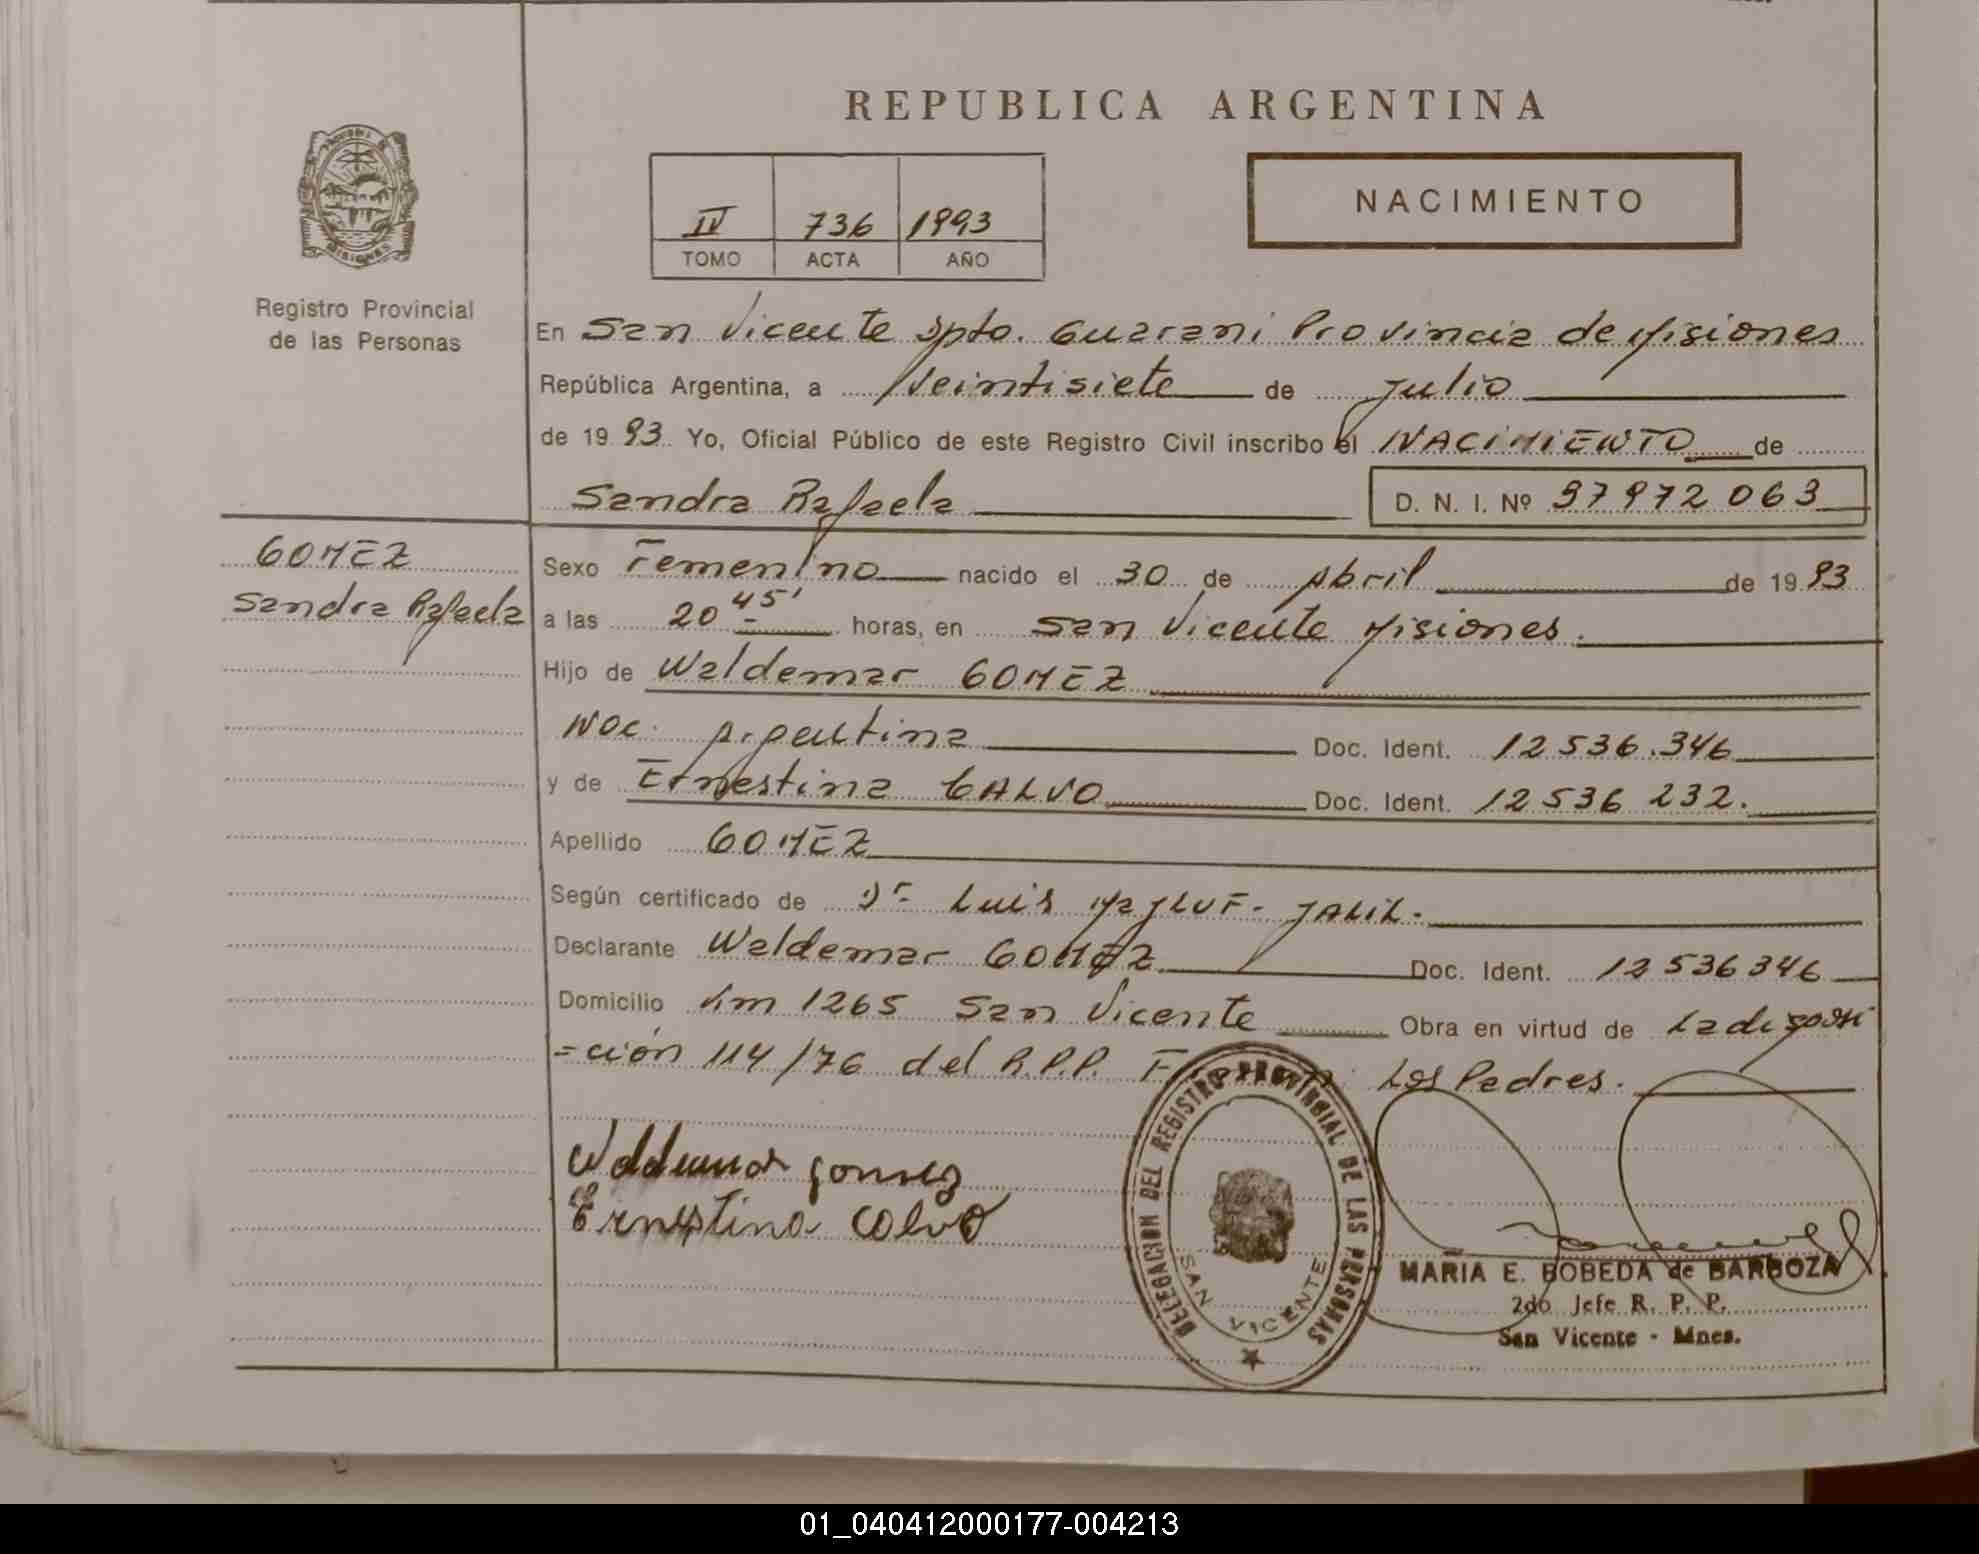 REPUBLICA ARGENTINA
NACIMIENTO
IV 736 1993
TOMO ACTA AÑO
MISIONES
Registro Provincial
de las Personas
En San Vicente Dpto. Guarani Provincia de Misiones
República Argentina, a Veintisiete de Julio
de 19 93 Yo, Oficial Público de este Registro Civil inscribo el NACIMIENTO de
Sandra Rafaela D. N. I. Nº 37972063
GOMEZ
Sandra Rafaela
Sexo Femenino nacido el 30 de Abril de 19 93
a las 20 45' horas, en San Vicente Misiones.
Hijo de Waldemar GOMEZ
Nac. Argentina Doc. Ident. 12536.346
y de Ernestina CALVO Doc. Ident. 12536 232.
Apellido GOMEZ
Según certificado de Dr Luis JALIL.
Declarante Waldemar GOMEZ Doc. Ident. 12536346
Domicilio Km 1265 San Vicente Obra en virtud de La disposi
=ción 114/76 del R.P.P. Los Padres.
Waldemar gomez
Ernestina Calvo
DELEGACION DEL REGISTRO PROVINCIAL DE LAS PERSONAS
SAN VICENTE
MARIA E. BOBEDA de BARBOZA
2do Jefe R. P. P.
San Vicente - Mnes.
01_040412000177-004213